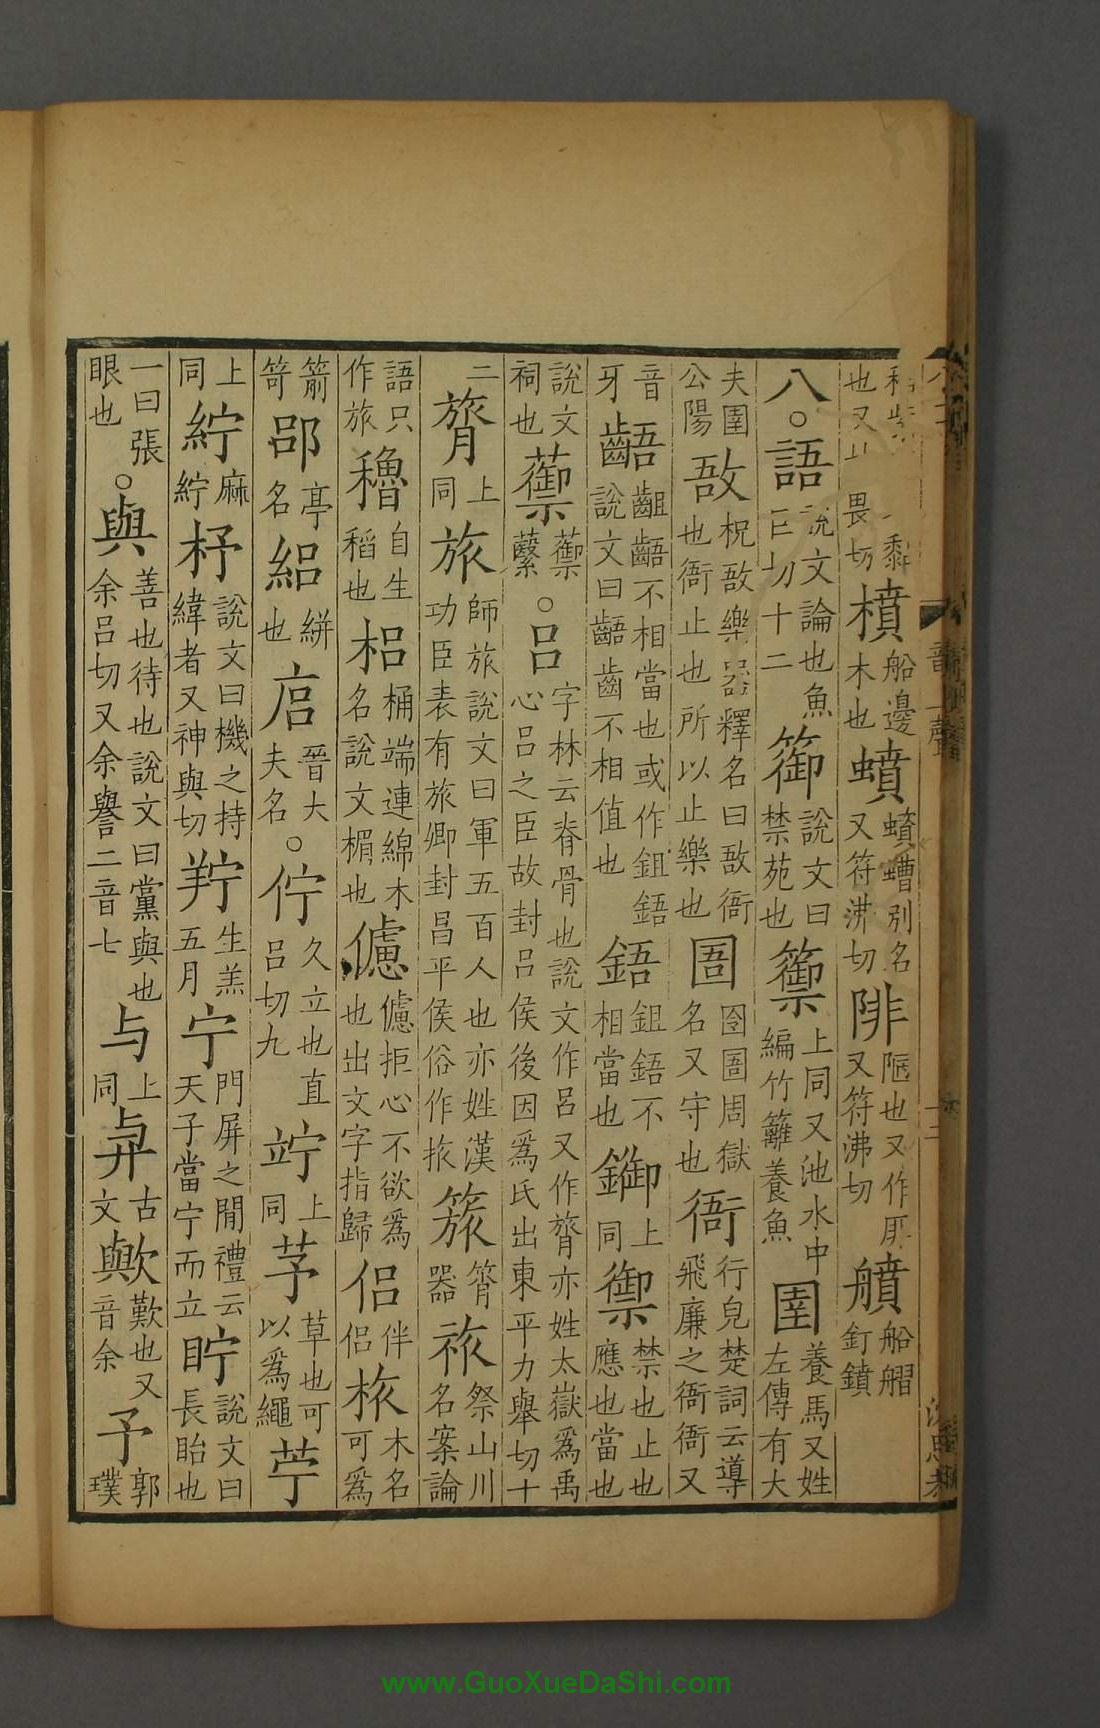 也又 畏切 黍 橨船邊木也 蟦蟦螬別名又符沸切 陫陋也又作厞又符沸切 艊船䑺釘鐼
八。語說文論也魚巨切十二 篽說文曰禁苑也 籞上同又池水中編竹籬養魚 圉養馬又姓左傳有大
夫圉公陽 敔柷敔樂器釋名曰敔衙也衙止也所以止樂也 圄囹圄周獄名又守也 衙行皃楚詞云導飛廉之衙衙又
音牙 齬齟齬不相當也或作鉏鋙說文曰齬齒不相值也 鋙鉏鋙不相當也 鋤上同 禦禁也止也應也當也
說文祠也 蘌蘌蘩 。呂字林云脊骨也說文作呂又作膂亦姓太嶽爲禹心呂之臣故封呂侯後因爲氏出東平力舉切十
二 膂上同 旅師旅說文曰軍五百人也亦姓漢功臣表有旅卿封昌平侯俗作挔 簇筲器 祣祭山川名案論
語只作旅 穭自生稻也 梠桶端連綿木名說文楣也 儢儢拒心不欲爲也出文字指歸 侶伴侶 梑木名可爲
箭笴 郘亭名 絽絣也 㡰晉大夫名 。佇久立也直呂切九 竚上同 芧草也可以爲繩 苧
上同 紵麻紵 杼說文曰機之持緯者又神與切 羜生羔五月 宁門屏之閒禮云天子當宁而立 眝說文曰長眙也
一曰張眼也 。與善也待也說文曰黨與也余呂切又余譽二音七 与上同 𢌱古文 歟歎也又音余 予郭璞
www.GuoXueDaShi.com